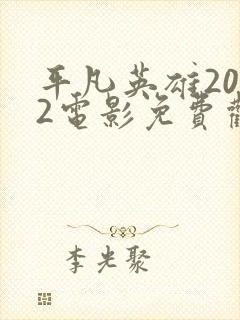 平凡英雄20
2電影免費觀
李光聚